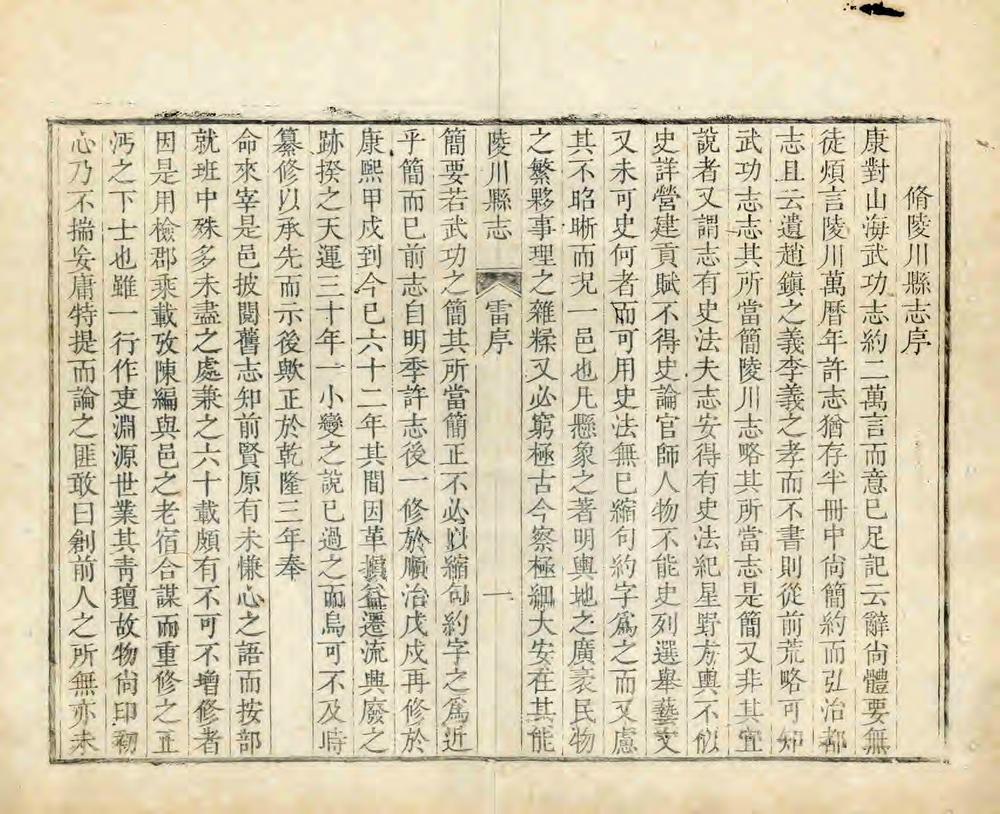 脩陵川縣志序
康對山海武功志約二萬言而意已足記云辭尙體要無
徒煩言陵川萬曆年許志猶存半冊中尙簡約而弘治都
志且云遺趙鎭之義李義之孝而不書則從前荒略可知
武功志志其所當簡陵川志略其所當志是簡又非其宜
說者又謂志有史法夫志安得有史法紀星野方輿不似
史詳營建貢賦不得史論官師人物不能史列選舉藝文
又未可史何者而可用史法無已縮句約字爲之而又慮
其不昭晰而况一邑也凡懸象之著明輿地之廣袤民物
之繁夥事理之雜糅又必窮極古今察極細大安在其能
陵川縣志 雷序 一
簡要若武功之簡其所當簡正不必以縮句約字之爲近
乎簡而已前志自明季許志後一修於順治戊戌再修於
康熙甲戌到今已六十二年其間因革損益遷流興廢之
跡揆之天運三十年一小變之說已過之而烏可不及時
纂修以承先而示後歟正於乾隆三年奉
命來宰是邑披閱舊志知前賢原有未慊心之語而按部
就班中殊多未盡之處兼之六十載頗有不可不增修者
因是用檢郡乘載攷陳編與邑之老宿合謀而重修之正
沔之下士也雖一行作吏淵源世業其靑氊故物尙印初
心乃不揣妄庸特提而論之匪敢曰創前人之所無亦未